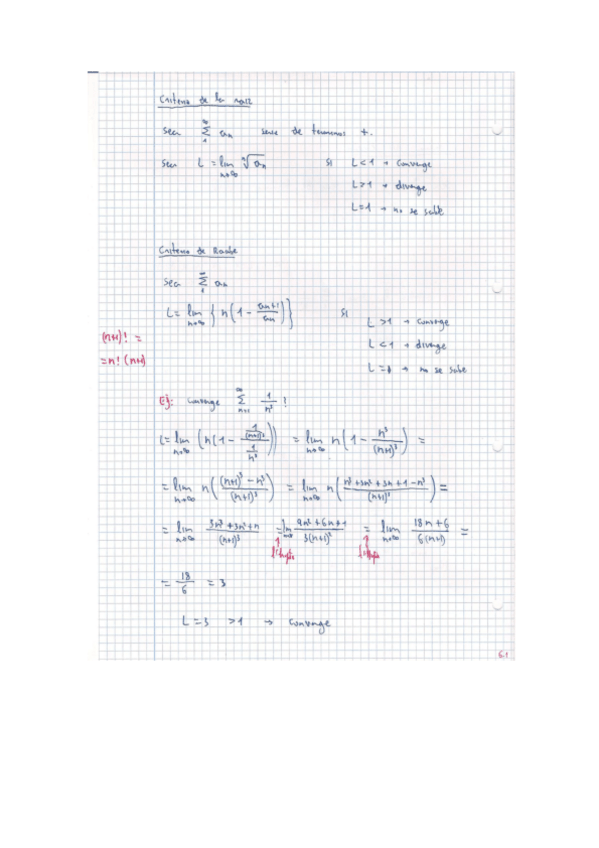 Criterio de la raiz
sea ∑_1^∞ an serie de terminos +.
sea L = lim_{n→∞} ⁿ√an si L<1 → converge
L>1 → diverge
L=1 → no se sabe
Criterio de Raabe
sea ∑_1^∞ an
L = lim_{n→∞} { n (1 - an+1/an) } si L >1 → converge
(n+1)! =
= n! (n+1)
L <1 → diverge
L =1 → no se sabe
Ej: converge ∑_{n=1}^∞ 1/n³ ?
L = lim_{n→∞} (n(1 - (1/(n+1)³)/(1/n³))) = lim_{n→∞} n (1 - n³/(n+1)³) =
= lim_{n→∞} n ( ((n+1)³ - n³)/(n+1)³ ) = lim_{n→∞} n ( (n³+3n²+3n+1-n³)/(n+1)³ ) =
= lim_{n→∞} (3n³+3n²+n)/(n+1)³ = lim_{n→∞} (9n²+6n+1)/(3(n+1)²) = lim_{n→∞} (18n+6)/(6(n+1)) =
= 18/6 = 3
L = 3 >1 → converge